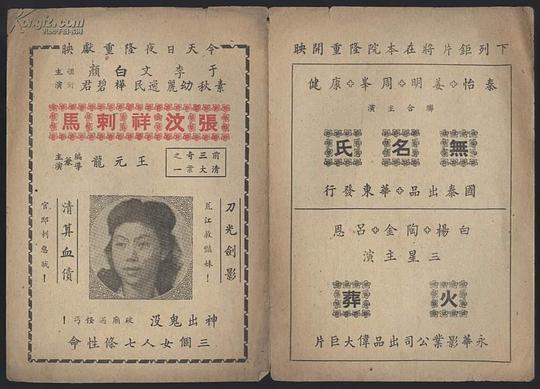 下列鉅片將在本院隆重開映
秦怡 姜明 周峯 康健
聯合主演
無名氏
國泰出品 華東發行
白楊 陶金 呂恩
三星主演
火葬
永華影業公司出品偉大巨片
今天日夜隆重獻映
于李文白顏
素秋幼麗逸民樺碧君
領銜主演
張汶祥刺馬
前清三大奇案之一
王元龍
編導兼主演
刀光劍影
江救豔妹!
清算血債
官邸刺惡賊!
神出鬼沒
破廟怪丐!
三個女人七條性命